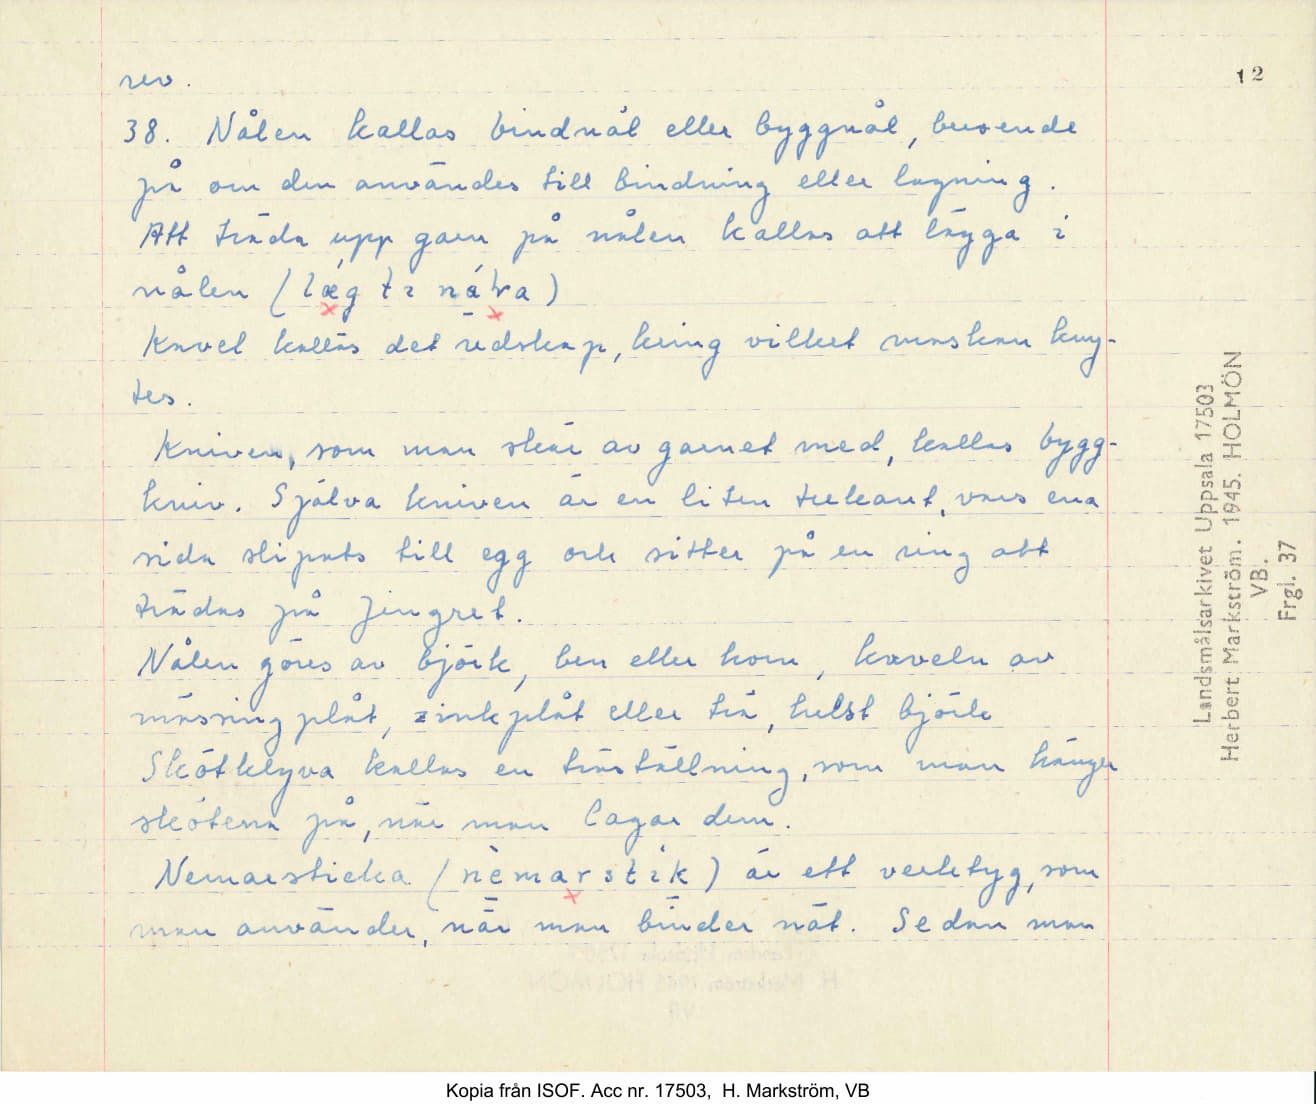 rev.
12
38. Nålen kallas bindnål eller byggnål, beroende
på om den användes till bindning eller lagning.
Att träda upp garn på nålen kallas att lägga i
nålen (lǽg ti nálra)
Kavel kallas det redskap, kring vilket maskan kny-
tes.
Kniven, som man skär av garnet med, kallas bygg-
kniv. Själva kniven är en liten trekant, vars ena
sida slipats till egg och sitter på en ring att
trädas på fingret.
Nålen göres av björk, ben eller horn, kaveln av
mässingplåt, zinkplåt eller trä, helst björk
Skötklyva kallas en träställning, som man hänger
skötena på, när man lagar dem.
Nemarsticka (nèmarstik) är ett verktyg, som
man använder, när man binder nät. Sedan man
Landsmålsarkivet Uppsala 17503
Herbert Markström. 1945. HOLMÖN
VB.
Frgl. 37
Kopia från ISOF. Acc nr. 17503, H. Markström, VB